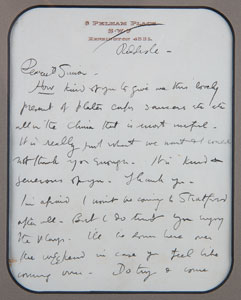 8 PELHAM PLACE
S·W·7
KENSINGTON 4891.
How kind of you to give us this lovely
present of plates cups saucers etc etc
all in the china that is most useful.
It is really just what we want & I can
not thank you enough. It is kind &
generous of you. Thank you.
I'm afraid I won't be coming to Stratford
after all. But I do trust you enjoy
the plays. We be down here over
the weekend in case you feel like
coming over. Do try & come